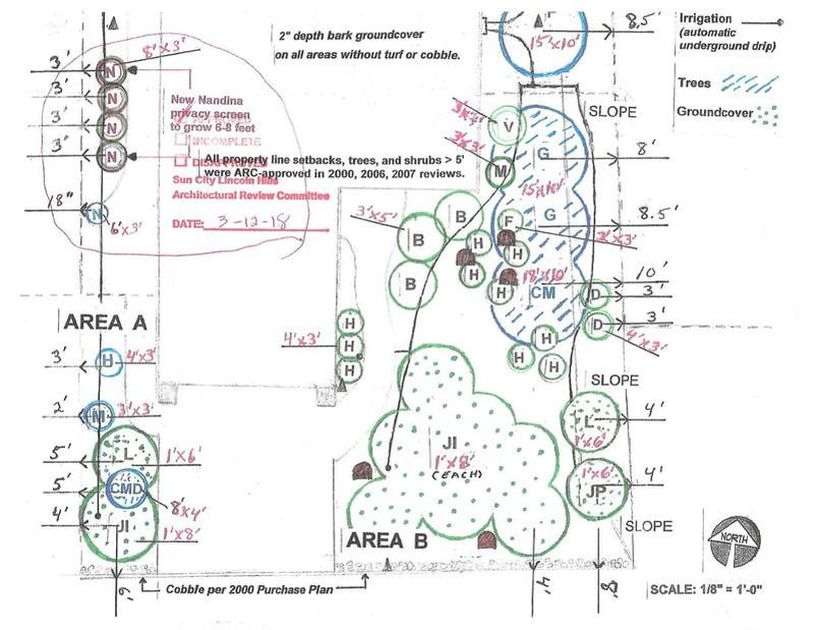 2" depth bark groundcover
on all areas without turf or cobble.
8.5'
Irrigation
(automatic
underground drip)
Trees
Groundcover
15'x10'
3'
3'
3'
3'
18"
8'x3'
N
N
N
N
N
6'x3'
New Nandina
privacy screen
to grow 6-8 feet
INCOMPLETE
All property line setbacks, trees, and shrubs > 5'
were ARC-approved in 2000, 2006, 2007 reviews.
Sun City Lincoln Hills
Architectural Review Committee
DATE: 3-12-18
V
M
G
15'x10'
G
F
SLOPE
8'
8.5'
3'x3'
10'
3'
3'
4'x3'
18'x10'
CM
D
D
3'x5'
B
B
B
H
H
H
H
H
H
H
AREA A
3'
H
4'x3'
2'
M
3'x3'
5'
L
1'x6'
5'
CMD
8'x4'
4'
JI
1'x8'
6'
4'x3'
H
H
H
JI
1'x8'
(EACH)
SLOPE
L
1'x6'
4'
1'x6'
JP
4'
SLOPE
AREA B
4'
8'
NORTH
Cobble per 2000 Purchase Plan
SCALE: 1/8" = 1'-0"